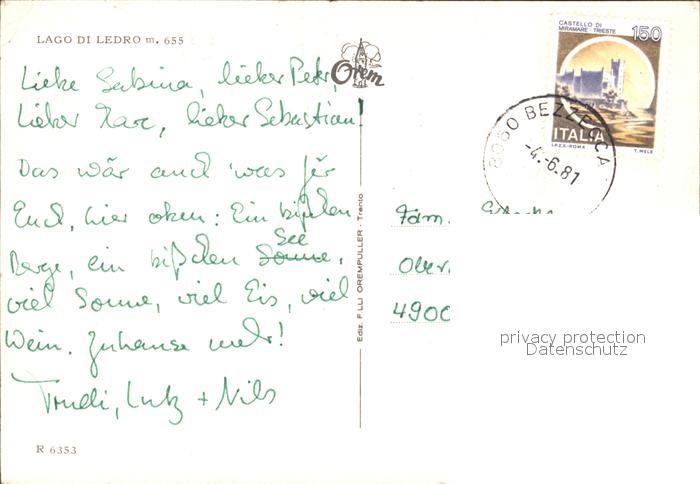 LAGO DI LEDRO m. 655
Orem
CASTELLO DI
MIRAMARE - TRIESTE
150
ITALIA
I.P.Z.S.-ROMA
T. MELE
38060 BEZZECCA
-4.-6.81
Liebe Sabina, lieber Peter,
lieber Marc, lieber Sebastian!
Das wär auch was für
Euch, hier oben: Ein bißchen
Berge, ein bißchen Sonne, See
viel Sonne, viel Eis, viel
Wein. Zuhause mehr!
Trudi, Lutz + Nils
Ediz. F.LLI OREMPULLER - Trento
Fam.
Ober
4900
privacy protection
Datenschutz
R 6353